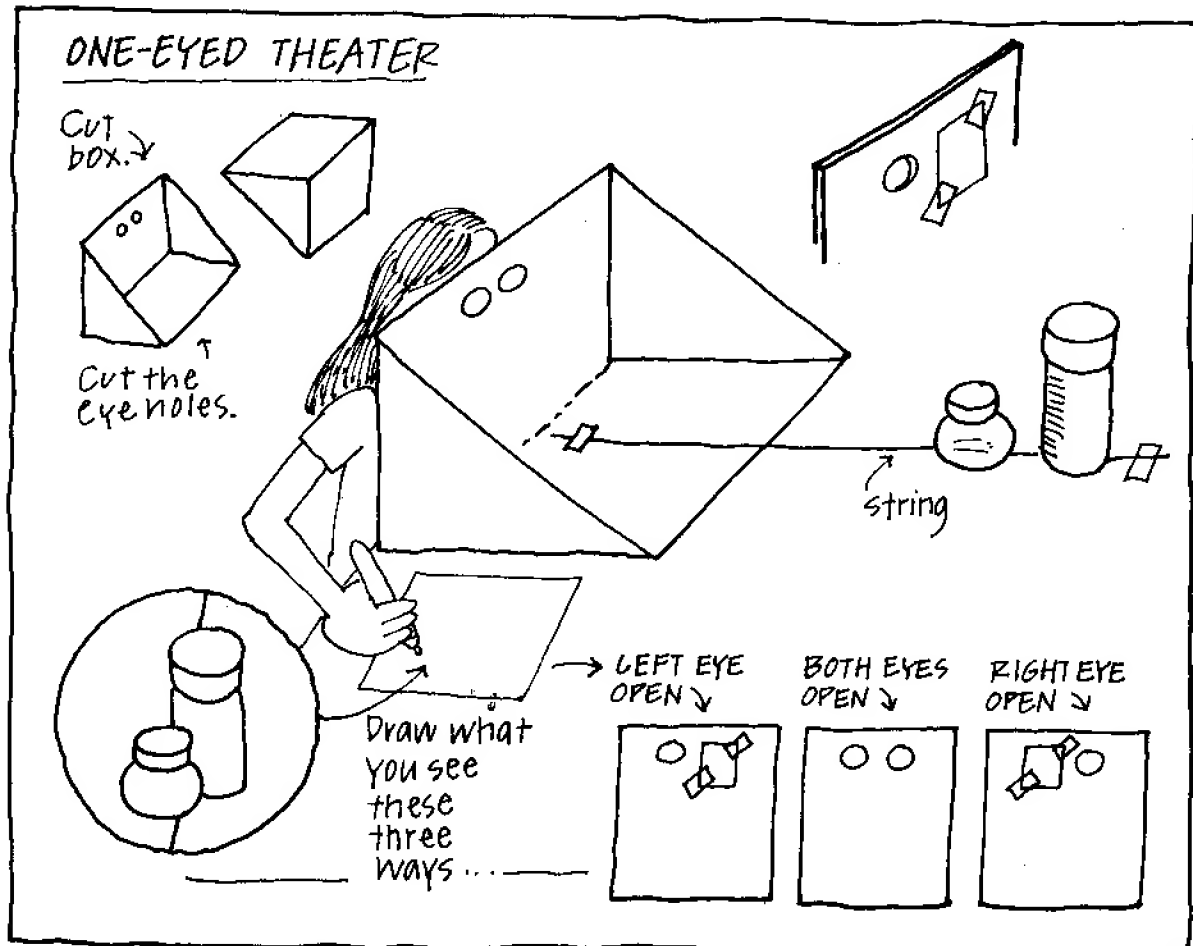 ONE-EYED THEATER
Cut
box.
Cut the
eye holes.
string
Draw what
you see
these
three
ways...
LEFT EYE
OPEN
BOTH EYES
OPEN
RIGHT EYE
OPEN